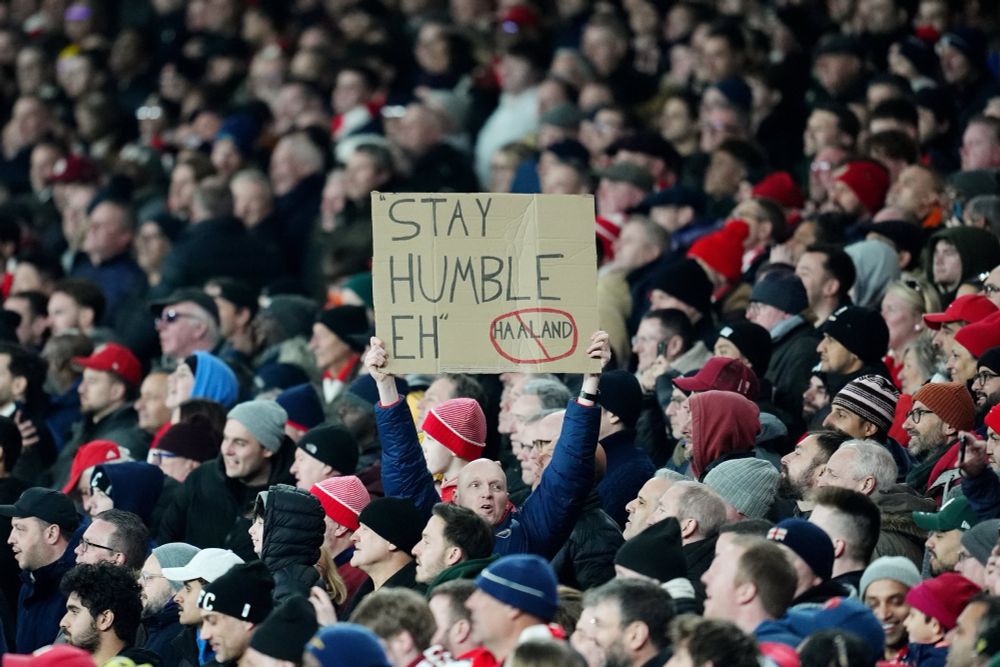 "STAY
HUMBLE
EH"
HAALAND